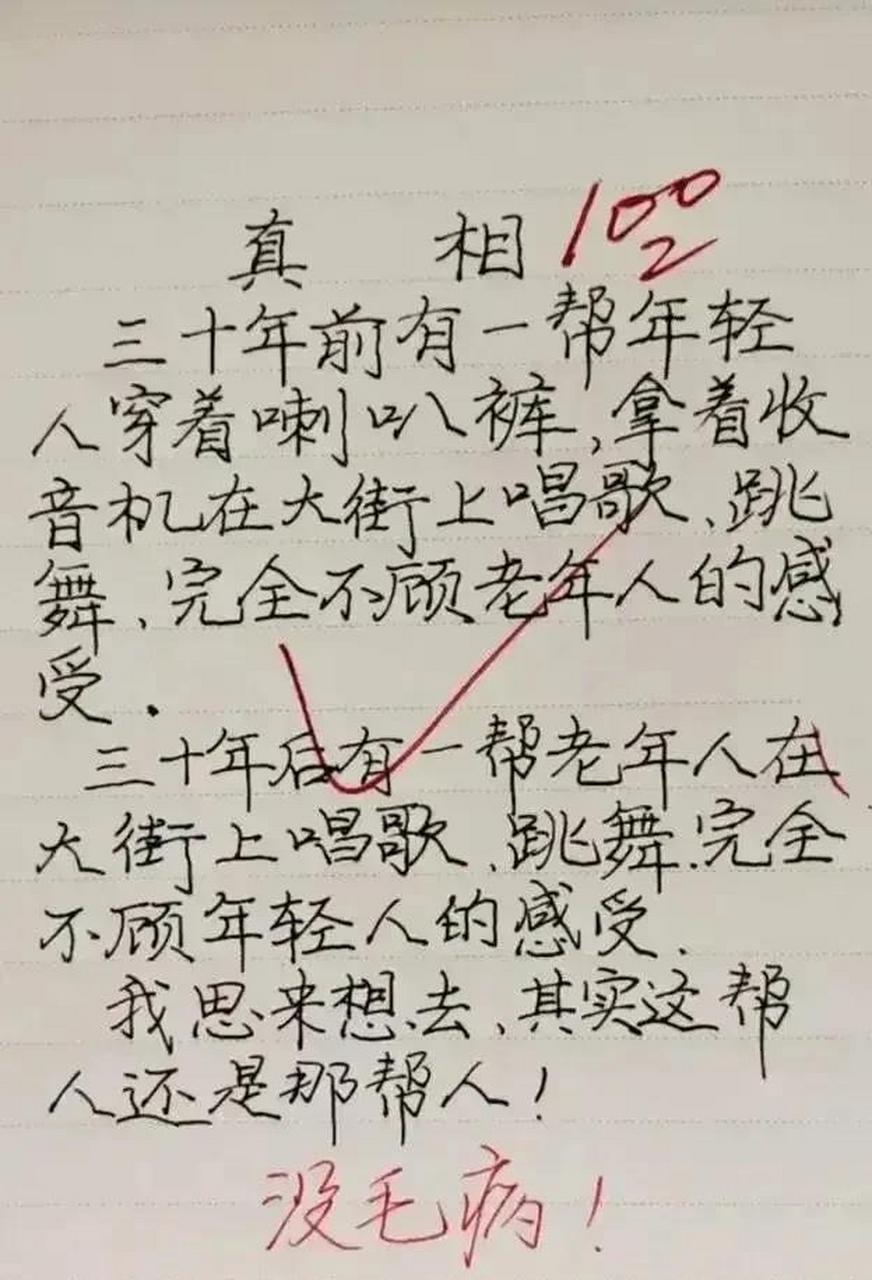 真 相 100
2
三十年前有一帮年轻
人穿着喇叭裤,拿着收
音机在大街上唱歌、跳
舞、完全不顾老年人的感
受.
三十年后有一帮老年人在
大街上唱歌、跳舞.完全
不顾年轻人的感受.
我思来想去、其实这帮
人还是那帮人!
没毛病!